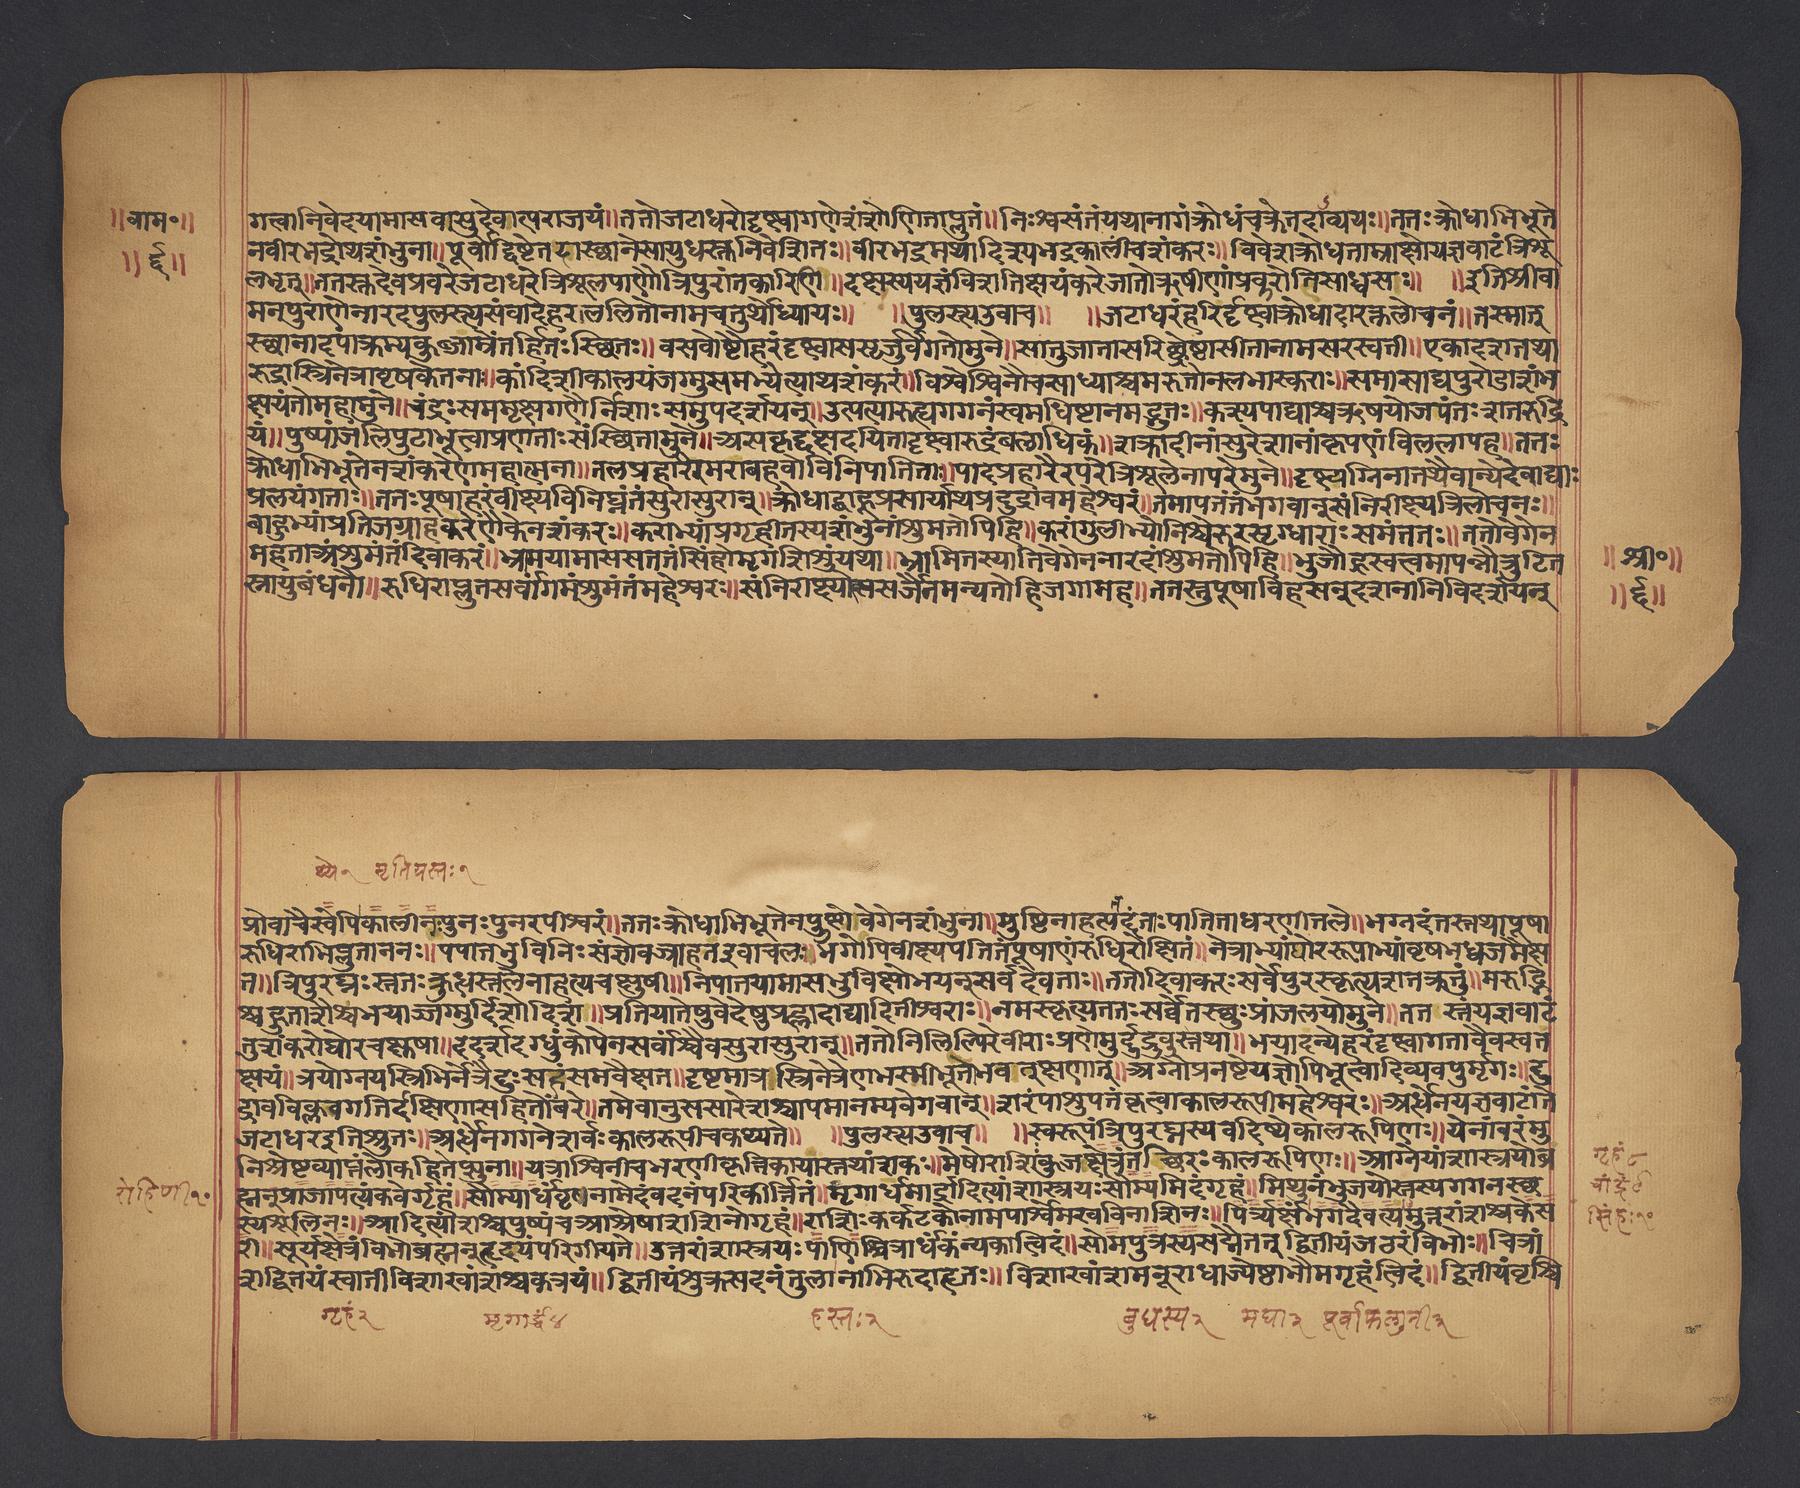 ॥वाम॰॥
गत्वानिवेदयामासवासुदेवात्पराजयं॥ततोजटाधरोदृष्ट्वागणेशंशोणिताप्लुतं॥निःश्वसंतंयथानागंक्रोधंचक्रेतदाव्ययः॥ततःक्रोधाभिभूते
नवीरभद्रोथशंभुना॥पूर्वोद्दिष्टेतदास्छानेसायुधस्तनिवेशितः॥वीरभद्रमथादिश्यभद्रकालींचशंकरः॥विवेशक्रोधताम्राक्षोयज्ञवाटंत्रिशू
लभृत्॥ततस्तदेवप्रवरेजटाधरेत्रिशूलपाणौत्रिपुरांतकारिणि॥दक्षस्ययज्ञंविशतिक्षयंकरेजातोऋषीणांप्रवरोतिसाध्वसः॥ ॥इतिश्रीवा
मनपुराणेनारदपुलस्त्यसंवादेहरललितोनामचतुर्थोध्यायः॥ ॥पुलस्त्यउवाच॥ ॥जटाधरंहरिर्दृष्ट्वाक्रोधादारक्तलोचनं॥तस्मात्
स्छानादपाक्रम्यकुब्जाम्रेंतर्हितःस्छितः॥वसवोष्टौहरंदृष्ट्वासस्रृजुर्वेगतोमुने॥सातुजातासरिच्छ्रेष्ठासीतानामसरस्वती॥एकादशतथा
रुद्रास्त्रिनेत्रावृषकेतनाः॥कांदिशीकालयंजग्मुसमभ्येत्याथशंकरं॥विश्वेश्विनौचसाध्याश्चमरुतोनलभास्कराः॥समासाद्यपुरोडाशंभ
क्षयंतोमहामुने॥चंद्रःसममृक्षगणैर्निशाःसमुपदर्शयन्॥उत्पत्यारुह्यगगनंस्वमधिष्टानमद्भुतः॥कश्यपाद्याश्चऋषयोजपंतःशतरुद्रि
यं॥पुष्पांजलिपुटाभूत्वाप्रणताःसंस्छितामुने॥असकृद्दक्षदयितादृष्ट्वारुद्रंबलाधिकं॥शक्रादीनांसुरेशानांकृपणंविललापह॥ततः
क्रोधाभिभूतेनशंकरेणमहात्मना॥तलप्रहारैरमराबहवोविनिपातिताः॥पादप्रहारैरपरेत्रिशूलेनापरेमुने॥दृष्ट्यग्निनातथैवान्येदेवाद्याः
प्रलयंगताः॥ततःपूषाहरंवीक्ष्यविनिघ्नंतंसुरासुरान्॥क्रोधाद्बाहूप्रसार्याथप्रदुद्रावमहेश्वरं॥तमापतंतंभगवान्संनिरीक्ष्यत्रिलोचनः॥
बाहुभ्यांप्रतिजग्राहकरेणैकेनशंकरः॥कराभ्यांप्रगृहीतस्यशंभुनांशुमतोपिहि॥करांगुलीभ्योनिश्चेरुरसृग्धाराःसमंततः॥ततोवेगेन
महताअंशुमंतंदिवाकरं॥भ्रामयामाससततंसिंहोमृगशिशुंयथा॥भ्रामितस्यातिवेगेननारदांशुमतोपिहि॥भुजौह्रस्वत्वमापन्नौत्रुटित
स्नायुबंधनौ॥रुधिराप्लुतसर्वांगमंशुमंतंमहेश्वरः॥संनिरीक्ष्योत्ससर्जैनमन्यतोहिजगामह॥ततस्तुपूषाविहसन्दशनानिविदर्शयन्
॥श्री॰॥
थ्ये१ मृतियस्तः१
प्रोवाचैस्वेपिकालीनःपुनःपुनरपीश्वरं॥ततःक्रोधाभिभूतेनपुष्णोवेगेनशंभुना॥मुष्टिनाहत्यदंताःपातिताधरणीतले॥भग्नदंतस्तथापूषा
रुधिराभिप्लुताननः॥पपातभुविनिःसंज्ञोवज्राहतइवाचलः॥भगोपिवीक्ष्यपतितंपूषाणंरुधिरोक्षितं॥नेत्राभ्यांघोररूपाभ्यांवृषभध्वजमैक्ष
त॥त्रिपुरघ्नःस्ततःक्रुधस्तलेनाहत्यचक्षुषी॥निपातयामासभुविक्षोभयन्सर्वदेवताः॥ततोदिवाकराःसर्वेपुरस्कृत्यशतक्रतुं॥मरुद्भि
श्चहुताशैश्चभयाज्जग्मुर्दिशोदिश॥प्रतियातेषुवेदेषुप्रह्लादाद्यादितीश्वराः॥नमस्कृत्यततःसर्वेतस्छुःप्रांजलयोमुने॥ततस्तंयज्ञवाटं
तुशंकरोघोरचक्षुषा॥ददर्शदग्धुंकोपेनसर्वांश्चैवसुरासुरान्॥ततोनिलिल्यिरेवीराःप्रणेमुर्दुद्रुवुस्तथा॥भयादन्येहरंदृष्ट्वागतावैवस्वत
क्षयं॥त्रयोग्नयस्त्रिभिर्नेत्रैदुःसहंसमवैक्षत॥दृष्टमात्रास्त्रिनेत्रेणभस्मीभूतोभवान्क्षणात्॥अग्नौप्रनष्टेयज्ञोपिभूत्वादिव्यवपुर्मृगः॥दु
द्रावविक्लवगतिर्दक्षिणासहितोंबरे॥तमेवानुससारेशश्चापमानम्यवेगवान्॥शरंपाशुपतंकृत्वाकालरूपीमहेश्वरः॥अर्धेनयज्ञवाटांते
जटाधरइतिश्रुतः॥अर्धेनगगनेशर्वःकालरूपीचकथ्यते॥ ॥पुलस्त्यउवाच॥ ॥स्वरूपंत्रिपुरघ्नस्यवदिष्येकालरूपिणः॥येनांबरंमु
निश्रेष्टव्याप्तंलोकहितेप्सुना॥यत्राश्विनीचभरणीकृत्तिकायास्तथांशकः॥मेषोराशिंकुजक्षेत्रंतच्छिरःकालरूपिणः॥आग्नेयांशास्त्रयोब्र
ह्मन्प्राजापत्यंकवेर्गृहं॥सौम्यार्धंवृषनामेदंवदनंपरिकीर्त्तितं॥मृगार्धमार्द्रादित्यांशास्त्रयःसौम्यमिदंगृहं॥मिथुनंभुजयोस्तस्यगगनस्छ
स्यशूलिनः॥आदित्यांशश्चपुष्यंचआश्लेषाशशिनोगृहं॥राशिःकर्कटकोनामपार्श्वेमखविनाशिनः॥पित्र्यर्क्षंभगदैवत्यमुत्तरांशश्चकेस
री॥सूर्यक्षेत्रंविभोब्रह्मन्हृदयंपरिगीयते॥उत्तरांशास्त्रयःपाणिश्चित्रार्धंकन्यकात्विदं॥सोमपुत्रस्यसद्मैतत्द्वितीयंजठरंविभोः॥चित्रां
शद्वितयंस्वातीविशाखांशश्चकत्रयं॥द्वितीयंशुक्रसदनंतुलानाभिरुदाहृतः॥विशाखांशमनूराधाज्येष्ठाभौमगृहंत्विदं॥द्वितीयंवृश्चि
रोहिणी१०
गृहं८
चांद्रे९
सिंहः१०
गृहं२ मृगार्द्ध४ हस्तः२ बुधस्य२ मघा२ पूर्वाफल्गुनी२